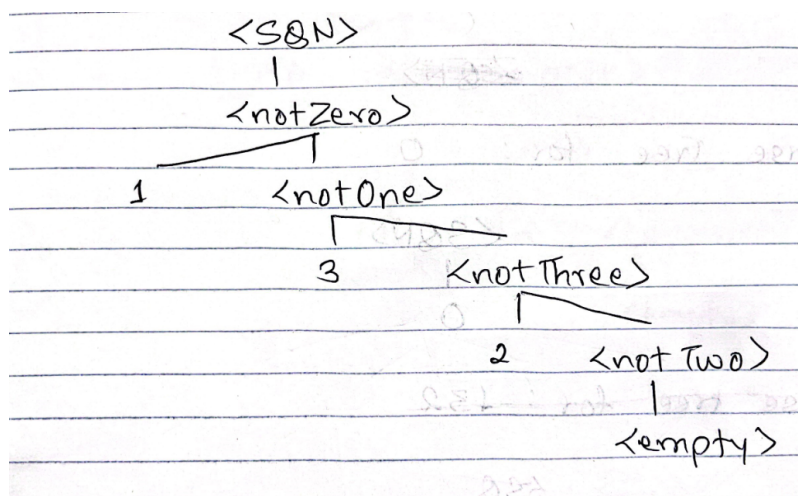 <SQN>
<notZero>
1 <notOne>
3 <notThree>
2 <not Two>
<empty>